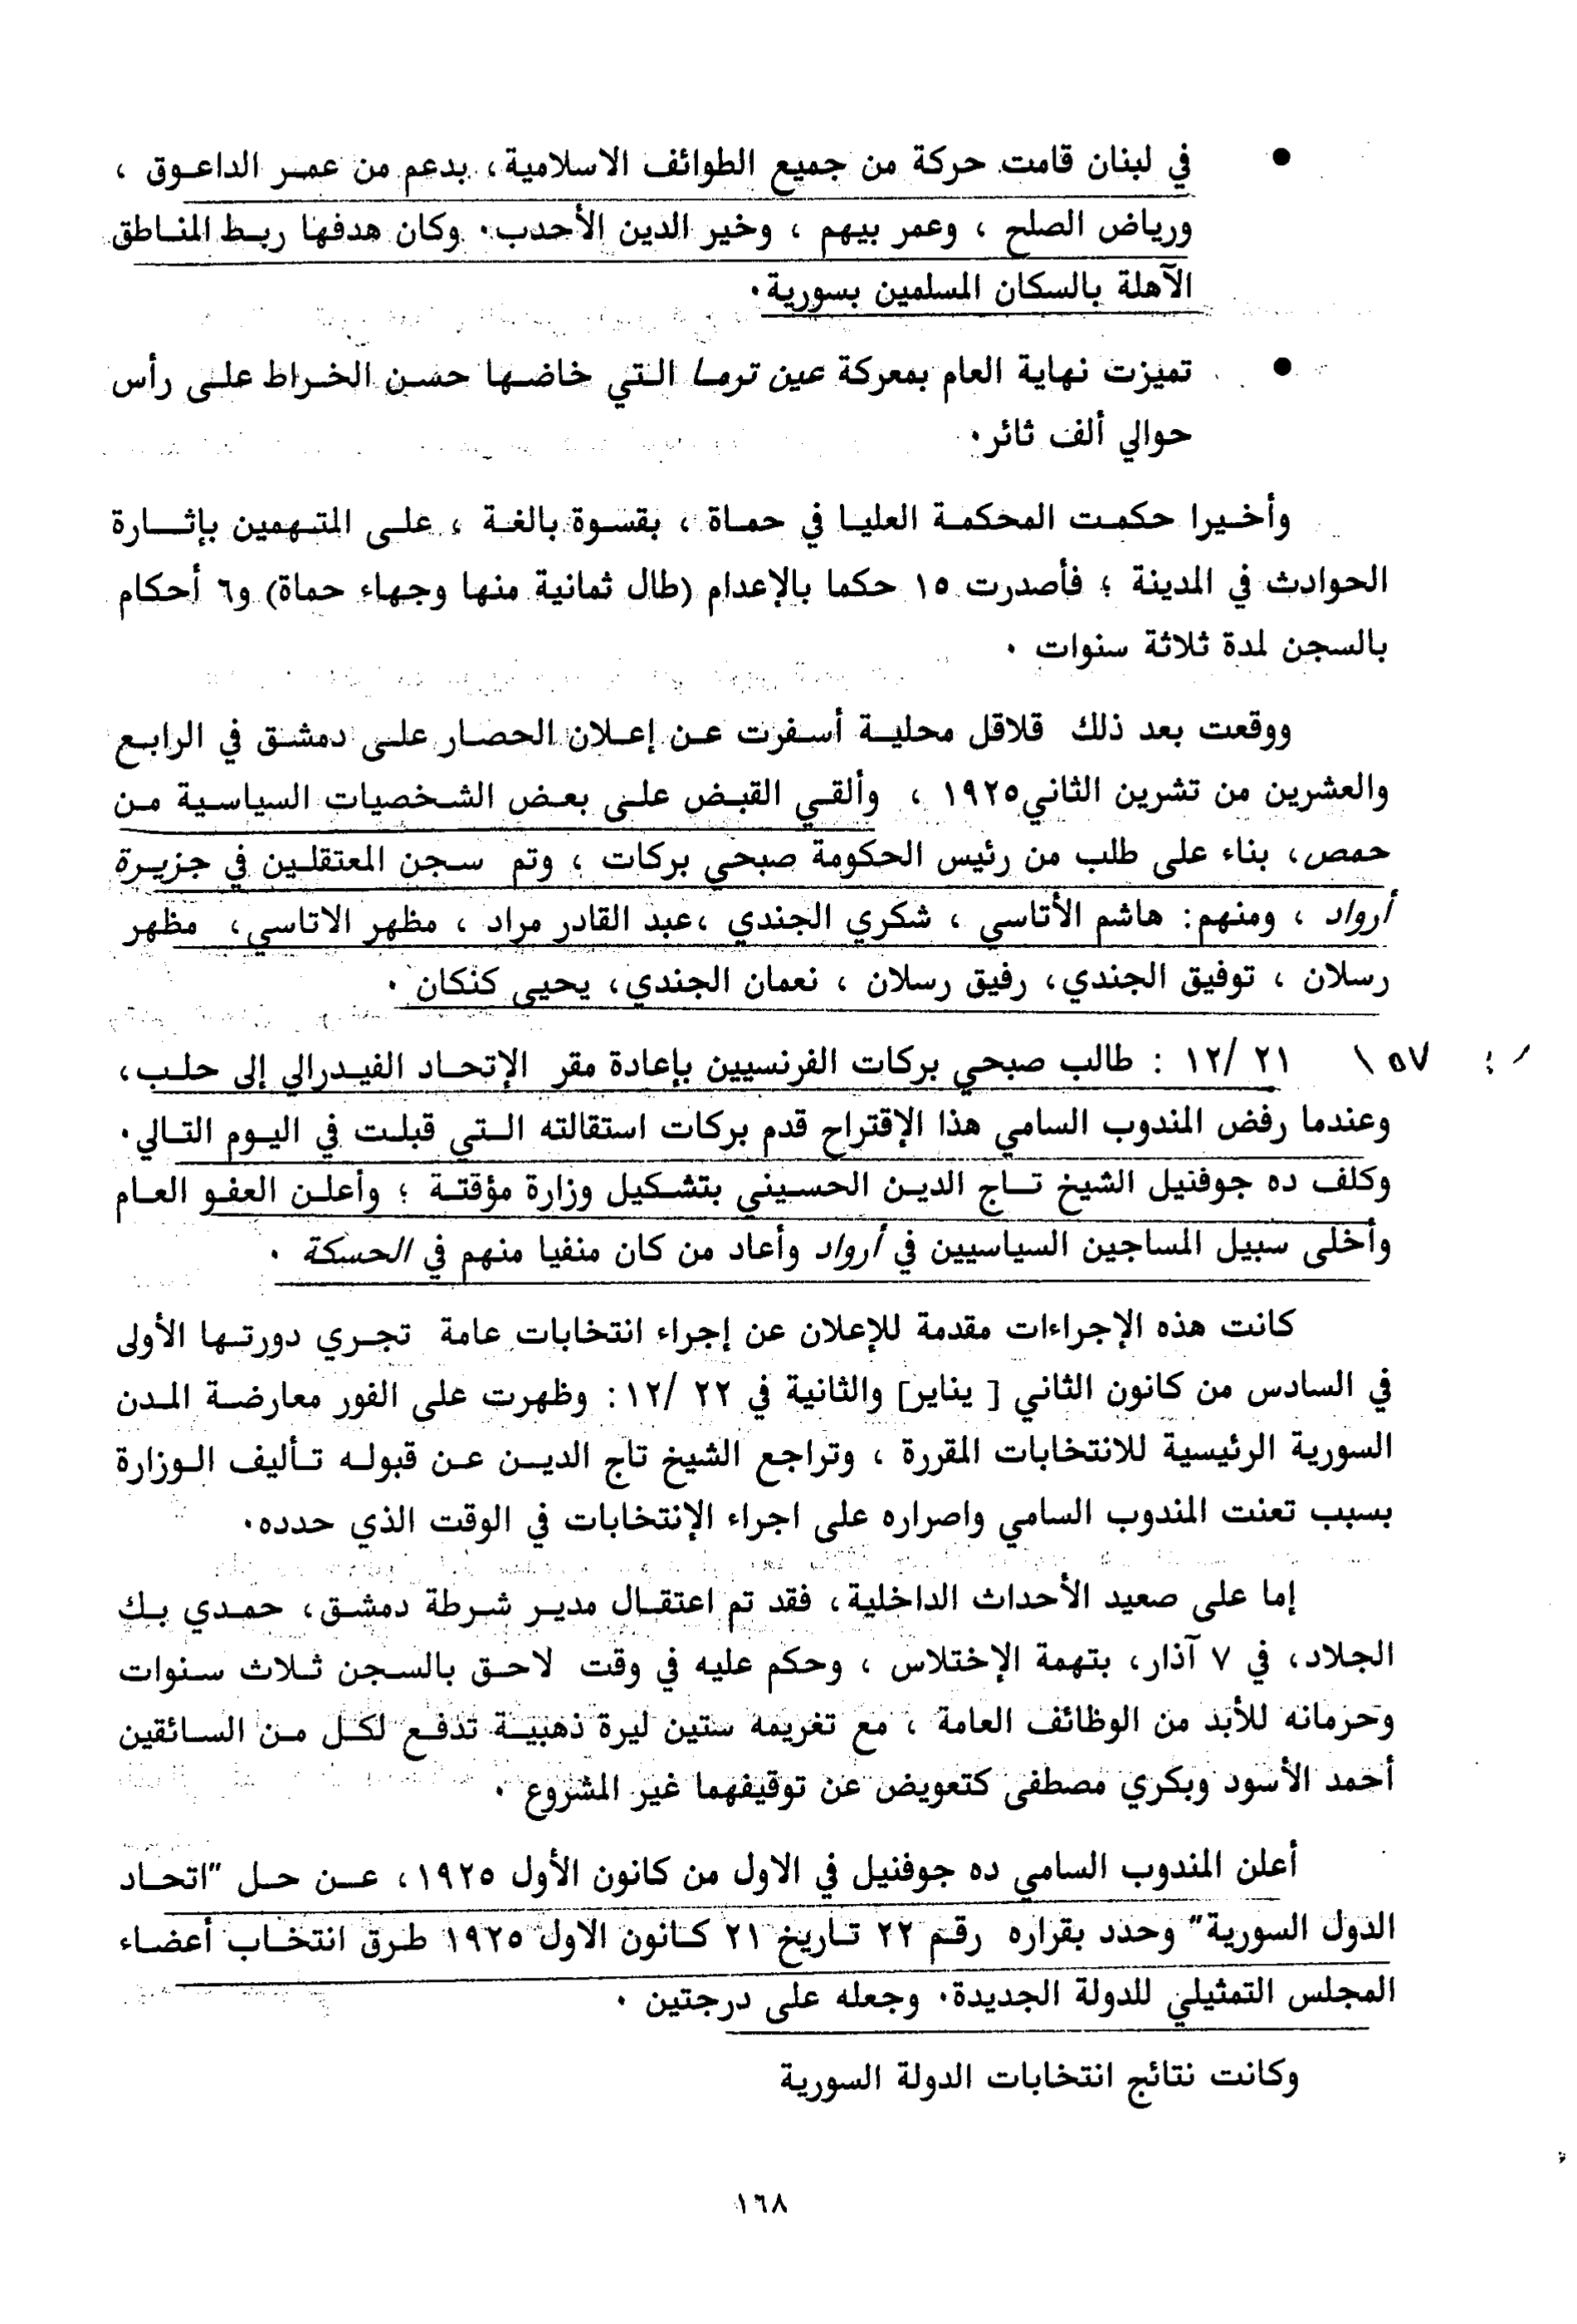 ● في لبنان قامت حركة من جميع الطوائف الاسلامية، بدعم من عمر الداعوق ،
ورياض الصلح ، وعمر بيهم ، وخير الدين الأحدب. وكان هدفها ربط المناطق
الآهلة بالسكان المسلمين بسورية.
● تميزت نهاية العام بمعركة عين ترما التي خاضها حسن الخراط على رأس
حوالي ألف ثائر.
وأخيرا حكمت المحكمة العليا في حماة ، بقسوة بالغة ، على المتهمين بإثارة
الحوادث في المدينة ؛ فأصدرت ١٥ حكما بالإعدام (طال ثمانية منها وجهاء حماة) و٦ أحكام
بالسجن لمدة ثلاثة سنوات .
ووقعت بعد ذلك قلاقل محلية أسفرت عن إعلان الحصار على دمشق في الرابع
والعشرين من تشرين الثاني١٩٢٥ ، وألقي القبض على بعض الشخصيات السياسية من
حمص، بناء على طلب من رئيس الحكومة صبحي بركات ؛ وتم سجن المعتقلين في جزيرة
أرواد ، ومنهم: هاشم الأتاسي ، شكري الجندي ،عبد القادر مراد ، مظهر الاتاسي، مظهر
رسلان ، توفيق الجندي، رفيق رسلان ، نعمان الجندي، يحيى كنكان .
٥٧ \ ٢١ /١٢ : طالب صبحي بركات الفرنسيين بإعادة مقر الإتحاد الفيدرالي إلى حلب،
وعندما رفض المندوب السامي هذا الإقتراح قدم بركات استقالته التي قبلت في اليوم التالي.
وكلف ده جوفنيل الشيخ تاج الدين الحسيني بتشكيل وزارة مؤقتة ؛ وأعلن العفو العام
وأخلى سبيل المساجين السياسيين في أرواد وأعاد من كان منفيا منهم في الحسكة .
كانت هذه الإجراءات مقدمة للإعلان عن إجراء انتخابات عامة تجري دورتها الأولى
في السادس من كانون الثاني [ يناير] والثانية في ٢٢ /١٢: وظهرت على الفور معارضة المدن
السورية الرئيسية للانتخابات المقررة ، وتراجع الشيخ تاج الدين عن قبوله تأليف الوزارة
بسبب تعنت المندوب السامي واصراره على اجراء الإنتخابات في الوقت الذي حدده.
إما على صعيد الأحداث الداخلية، فقد تم اعتقال مدير شرطة دمشق، حمدي بك
الجلاد، في ٧ آذار، بتهمة الإختلاس ، وحكم عليه في وقت لاحق بالسجن ثلاث سنوات
وحرمانه للأبد من الوظائف العامة ، مع تغريمه ستين ليرة ذهبية تدفع لكل من السائقين
أحمد الأسود وبكري مصطفى كتعويض عن توقيفهما غير المشروع .
أعلن المندوب السامي ده جوفنيل في الاول من كانون الأول ١٩٢٥، عن حل "اتحاد
الدول السورية" وحدد بقراره رقم ٢٢ تاريخ ٢١ كانون الاول ١٩٢٥ طرق انتخاب أعضاء
المجلس التمثيلي للدولة الجديدة. وجعله على درجتين .
وكانت نتائج انتخابات الدولة السورية
١٦٨